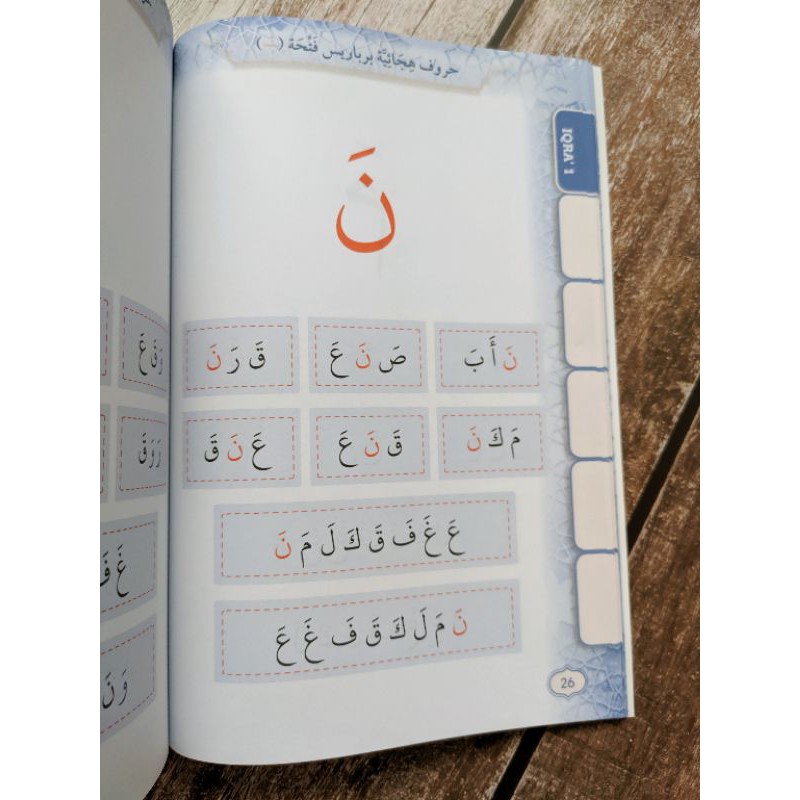 حروف هِجَائِيَّة برباريس فَتْحَة (ـَـ)
IQRA' 1
نَ
نَ أَ بَ
صَ نَ عَ
قَ رَ نَ
مَ كَ نَ
قَ نَ عَ
عَ نَ قَ
عَ غَ فَ قَ كَ لَ مَ نَ
نَ مَ لَ كَ قَ فَ غَ عَ
26